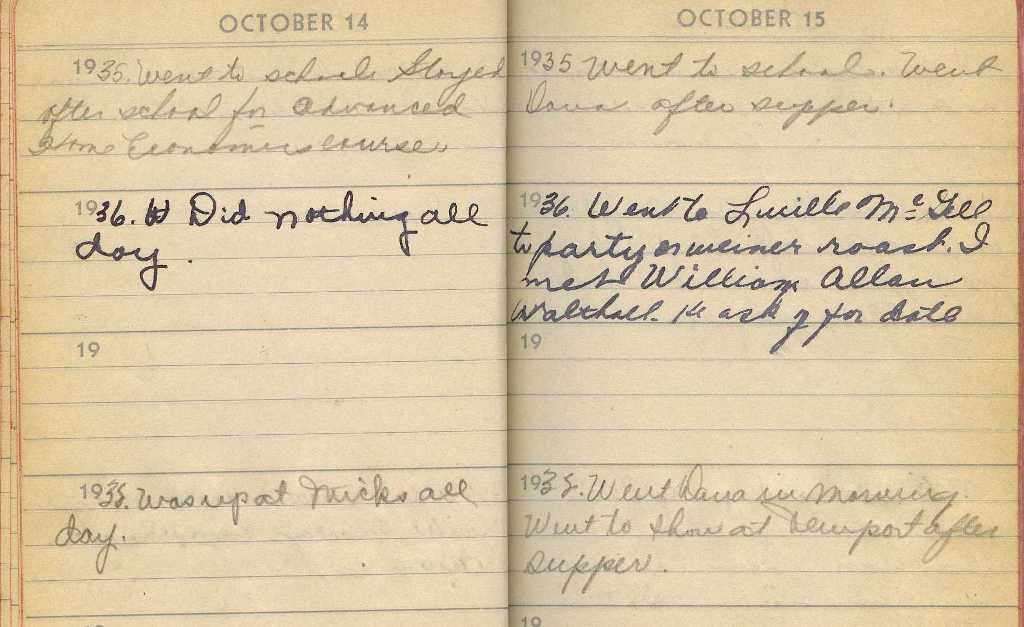 OCTOBER 14
1935. Went to school. Stayed
after school for Advanced
Home Economics course.
1936. Did nothing all
day.
19
1938. Was up at Micks all
day.
OCTOBER 15
1935 Went to school. Went
Dana after supper.
1936. Went to Lucille McGell
to party or weiner roast. I
met William Allan
Walthall. He ask for date
19
1938. Went Dana in morning.
Went to show at Newport after
supper.
19